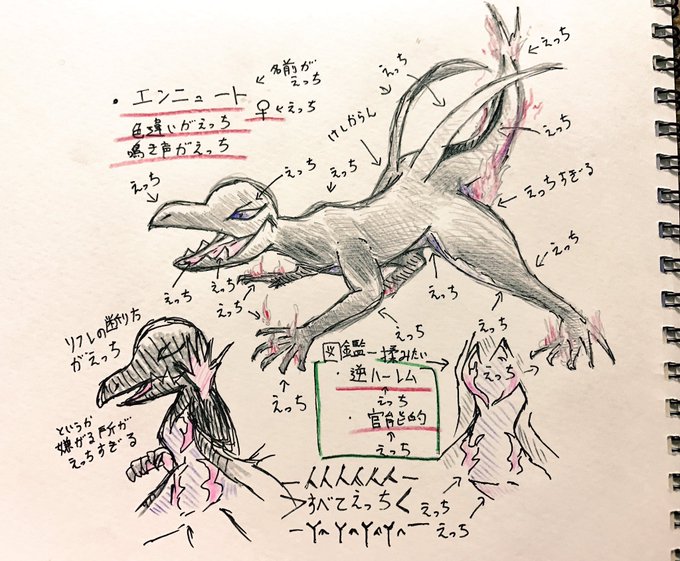 ・エンニュート
名前が
えっち
♀
えっち
色違いがえっち
鳴き声がえっち
えっち
えっち
えっち
えっち
けしからん
えっち
えっち
えっちすぎる
えっち
えっち
えっち
えっち
えっち
えっち
えっち
リフレの断り方
がえっち
というか
嫌がる所が
えっちすぎる
図鑑
揉みたい
・逆ハーレム
えっち
・官能的
えっち
えっち
えっち
すべてえっち
えっち
えっち